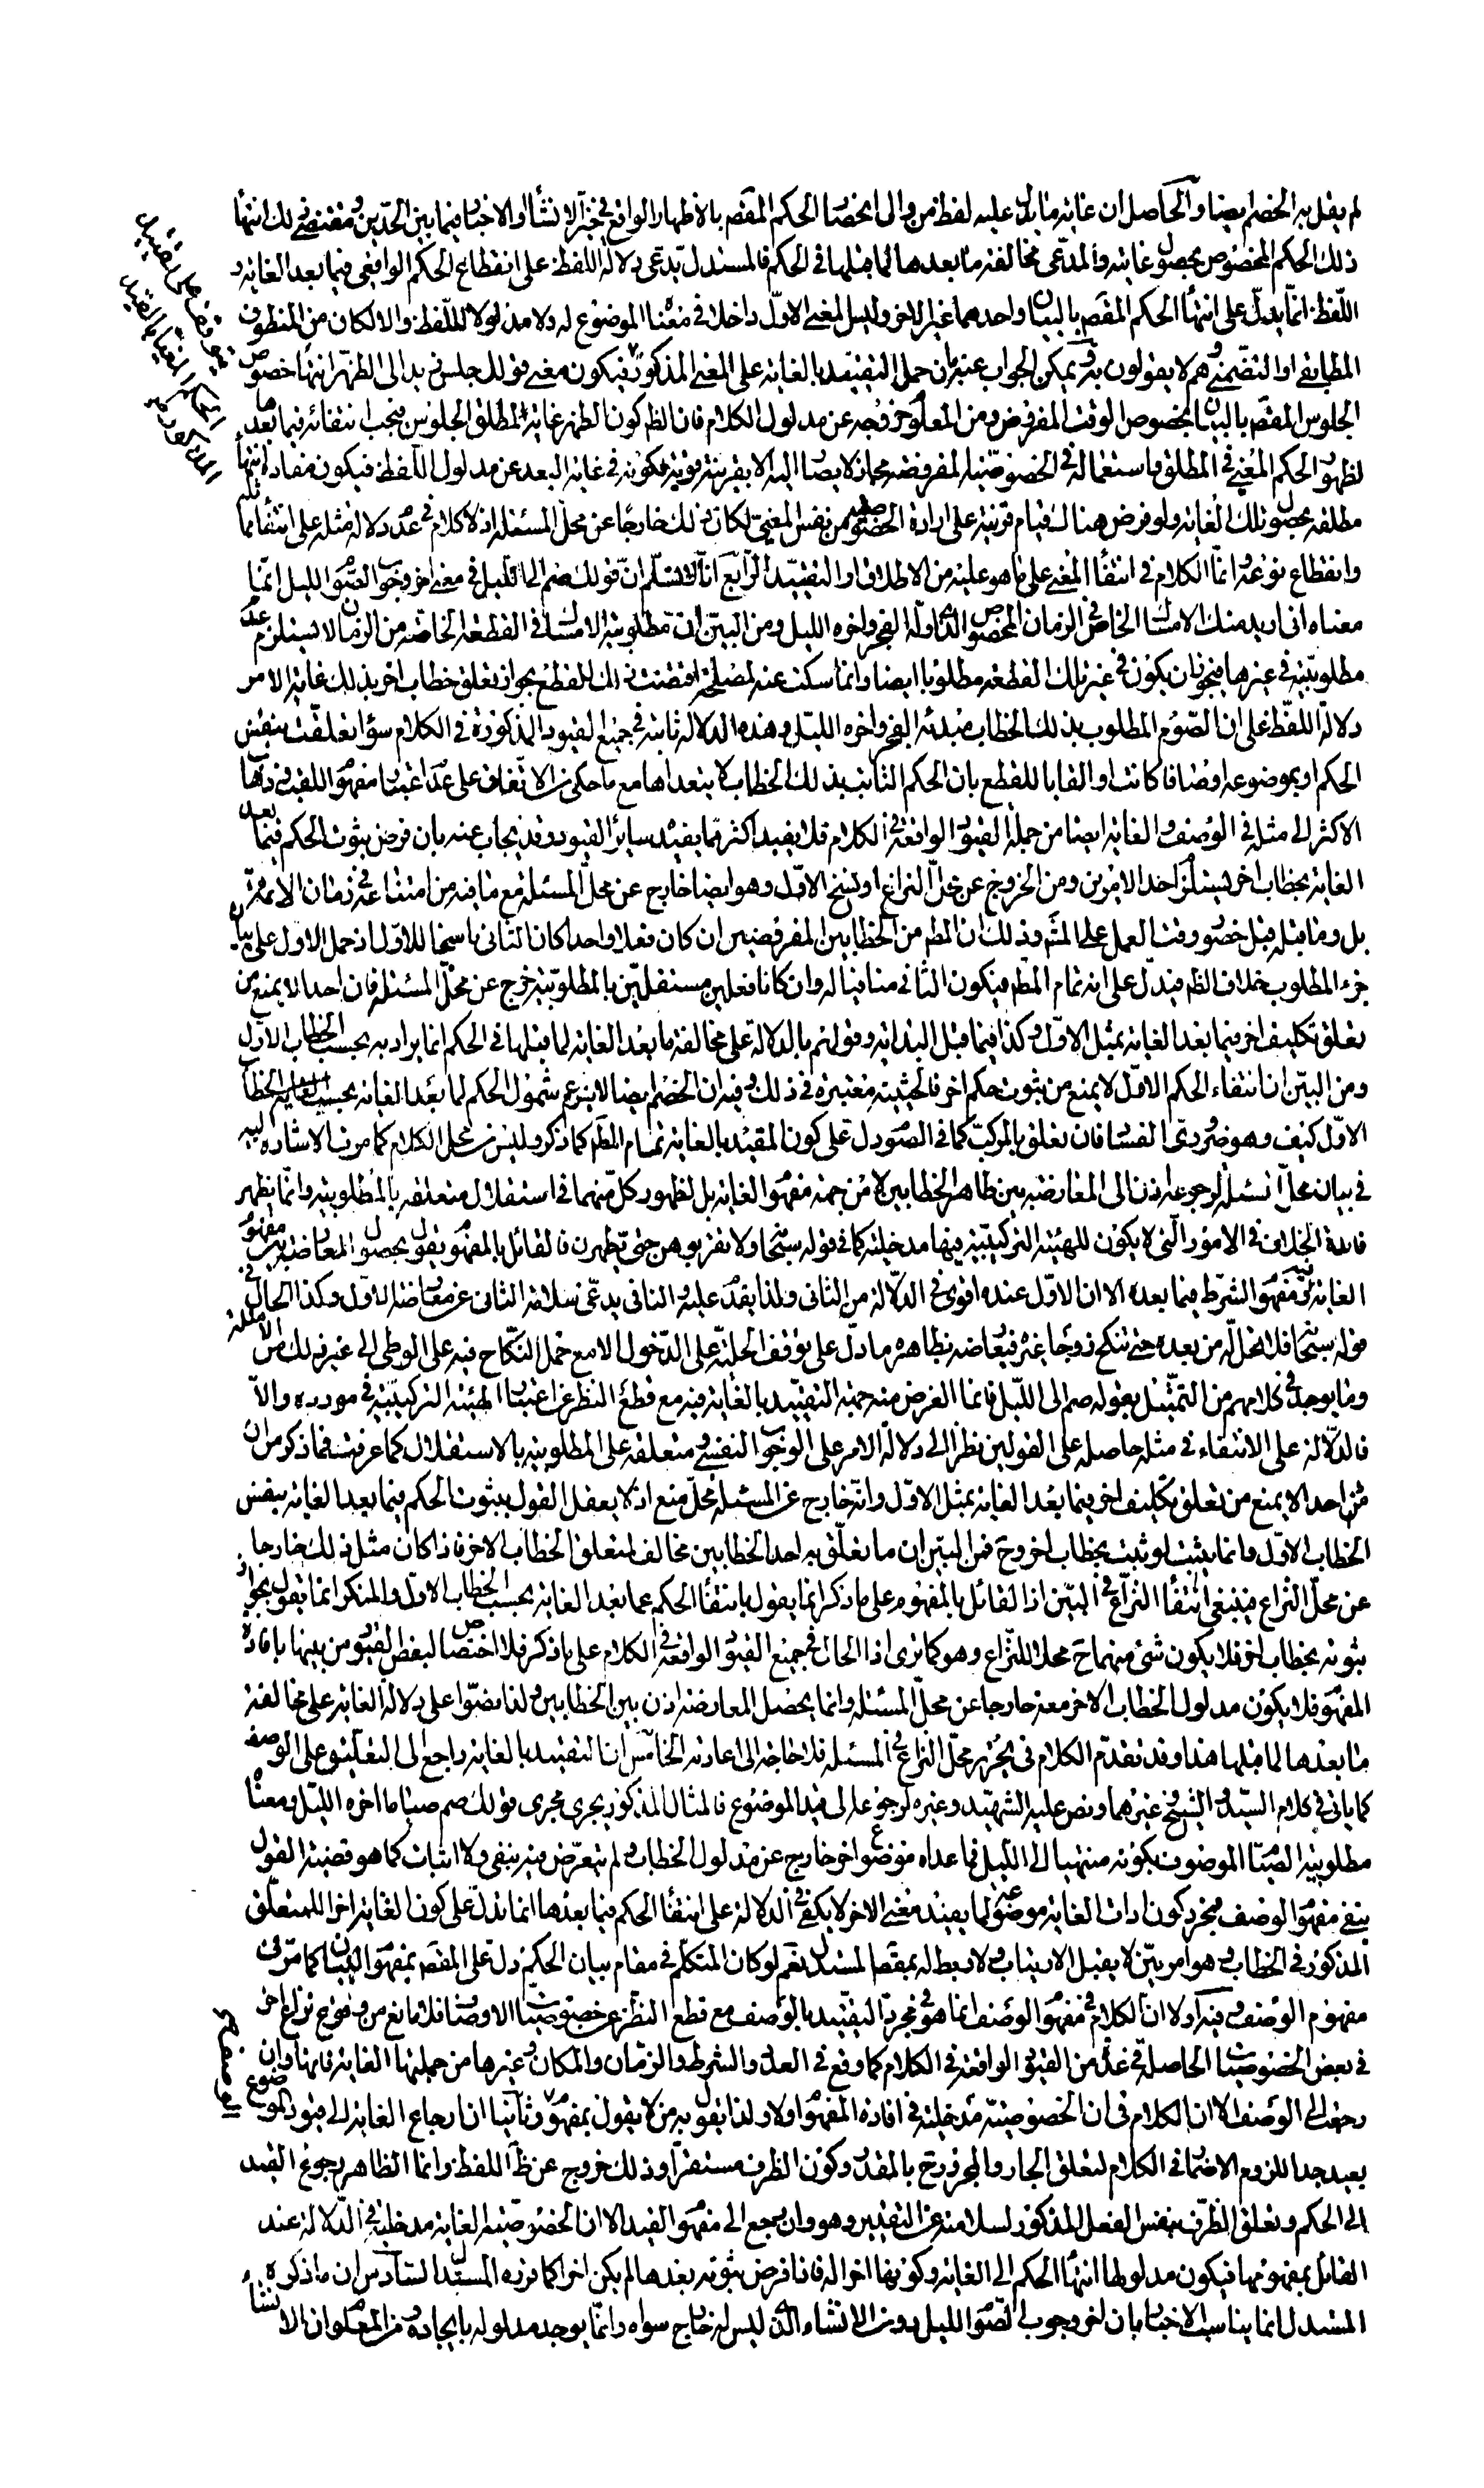 لم يقل به الخصم ايضا والحاصل ان غاية ما يدل عليه لفظ من والى انحصار الحكم المقصود بالاظهار الواقع في حيز الانشاء او الاخبار فيما بين الحدين ومقتضى ذلك انتهاء
ذلك الحكم المخصوص بحصول غايته والمدعى مخالفة ما بعدها لما قبلها في الحكم فالمستدل يدعى دلالة اللفظ على انقطاع الحكم الواقعي فيما بعد الغاية و
اللفظ انما يدل على انتهاء الحكم المقصم بالبيان واحدهما غير الاخر وليس المعنى الاول داخلا في معنا الموضوع له ولا مدلولا للفظ والا لكان من المنطوق
المطابقي او التضمني وهم لا يقولون به ويمكن الجواب عنه بان حمل التقييد بالغاية على المعنى المذكور فيكون معنى قولك جلس زيد الى الظهر انتهاء خصوص
الجلوس المقصم بالبيان بخصوص الوقت المفروض ومن المعلوم خروجه عن مدلول الكلام فان الظم كون الظهر غاية لمطلق الجلوس فيجب انتفائه فيما بعدها
لظهور الحكم المغيى في المطلق واستعماله في الخصوصية المفروضة مجاز لا يصار اليه الا بقرينة قوية لكونه في غاية البعد عن مدلول اللفظ فيكون مفاده انتهاء
مطلقه بحصول تلك الغاية ولو فرض هناك قيام قرينة على ارادة الخصوصية من نفس المغيى لكان ذلك خارجا عن محل المسئلة اذ لا كلام في عدم دلالة مثله على انتفاء
وانقطاع نوعه انما الكلام في انتفاء المغيى على ما هو عليه من الاطلاق او التقييد الرابع انا لا نسلم ان قولك صم الى الليل في معنى اخر وجوب الصوم الليل انما
معناه انى اريد منك الامساك الخاص في الزمان المخصوص الذي اوله الفجر واخره الليل ومن البين ان مطلوبية الامساك في القطعة الخاصة من الزمان لا تستلزم عدم
مطلوبيته في غيرها فيجوز ان يكون في غير تلك القطعة مطلوبا ايضا وانما سكت عنه لمصلحة اقتضت ذلك للقطع بجواز تعلق خطاب اخر بذلك غاية الامر
دلالة اللفظ على ان الصوم المطلوب بذلك الخطاب مبدئه الفجر واخره الليل وهذه الدلالة ثابتة في جميع القيود المذكورة في الكلام سواء تعلقت بنفس
الحكم او بموضوعه اوصافا كانت او القابا للقطع بان الحكم الثابت بذلك الخطاب لا يتعداها مع ما حكى من الاتفاق على عدم اعتبار مفهوم اللقب وذهاب
الاكثر الى مثله في الوصف والغاية ايضا من جملة القيود الواقعة في الكلام فلا يفيد اكثر مما يفيده ساير القيود وقد يجاب عنه بان فرض ثبوت الحكم فيما بعد
الغاية بخطاب اخر يستلزم احد الامرين ومن الخروج عن محل النزاع او نسخ الاول وهو ايضا خارج عن محل المسئلة مع ما فيه من امتناعه في زمان الائمة
بل وما قبله قبل حضور وقت العمل على المشهور وذلك ان المطم من الخطابين المفروضين ان كان فعلا واحدا كان الثانى ناسخا للاول اذ حمل الاول على بيان
جزء المطلوب خلاف الظم فيدل على انه تمام المطم فيكون الثانى منافيا له وان كانا فعلين مستقلين بالمطلوبية خرج عن محل المسئلة فان احدا لا يمنع من
تعلق تكليف اخر فيما بعد الغاية بمثل الاول وكذا فيما قبل البداية وقولهم بالدلالة على مخالفة ما بعد الغاية لما قبلها في الحكم انما يراد به بحسب الخطاب الاول
ومن البين ان انتفاء الحكم الاول لا يمنع من ثبوت حكم اخر فالحيثية معتبرة في ذلك وفيه ان الخصم ايضا لا يزعم شمول الحكم لما بعد الغاية بحسب الخطاب
الاول كيف وهو ضرورى الفساد فان تعلق بالمركب كما في الصوم دل على كون المقيد بالغاية تمام المطم كما ذكر وليس من محل الكلام كما مرت الاشارة اليه
في بيان محل المسئلة لرجوعه اذن الى المعارضة بين ظاهر الخطابين لا من جهة مفهوم الغاية بل لظهور كل منهما في استقلال متعلقه بالمطلوبية وانما يظهر
فائدة الخلاف في الامور التى لا يكون للهيئة التركيبية فيها مدخلية كما في قوله سبحانه ولا تقربوهن حتى يطهرن فالقائل بالمفهوم يقول بحصول المعارضة بين مفهوم
الغاية فيه ومفهوم الشرط فيما بعده الا ان الاول عنده اقوى في الدلالة من الثانى ولذا يقدم عليه والنافي يدعى سلامة الثانى عن معارضة الاول وكذا الحال في
قوله سبحانه فلا تحل له من بعد حتى تنكح زوجا غيره فيعارضه بظاهره ما دل على توقف الحلية على الدخول الا مع حمل النكاح فيه على الوطى الى غير ذلك من الامثلة
وما يوجد في كلامهم من التمثيل بقوله صم الى الليل فانما الغرض منه جهة التقييد بالغاية فيه مع قطع النظر عن اعتبار الهيئة التركيبية في مورده والا
فالدلالة على الانتفاء في مثله حاصلة على القولين نظرا الى دلالة الامر على الوجوب النفسي ومتعلقه على المطلوبية بالاستقلال كما عرفت فما ذكر من ان
احدا لا يمنع من تعلق تكليف اخر فيما بعد الغاية بمثل الاول وانه خارج عن المسئلة محل منع اذ لا يعقل القول بثبوت الحكم فيما بعد الغاية بنفس
الخطاب الاول وانما يثبت لو ثبت بخطاب اخر وح فمن البين ان ما تعلق به احد الخطابين مخالف لمتعلق الخطاب الاخر فاذا كان مثل ذلك خارجا
عن محل النزاع فينبغى انتفاء النزاع في البين اذ القائل بالمفهوم على ما ذكر انما يقول بانتفاء الحكم عما بعد الغاية بحسب الخطاب الاول والمنكر انما يقول بجواز
ثبوته بخطاب اخر فلا يكون شئ منهما ح محلا للنزاع وهو كما ترى اذا الحال في جميع القيود الواقعة في الكلام على ما ذكر فلا اختصاص لبعض القيود من بينها بافادة
المفهوم فلا يكون مدلول الخطاب الاخر معه خارجا عن محل المسئلة وانما يحصل المعارضة اذن بين الخطابين ولذا نصوا على دلالة الغاية على مخالفة
ما بعدها لما قبلها هذا وقد تقدم الكلام في تحرير محل النزاع في المسئلة فلا حاجة الى اعادته الخامس ان التقييد بالغاية راجع الى التعليق على الوصف
كما ياتى في كلام السيد والشيخ وغيرهما ونص عليه الشهيد وغيره لرجوعه الى قيد الموضوع فالمثال المذكور يجرى مجرى قولك صم صياما اخره الليل ومعناه
مطلوبية الصيام الموصوف بكونه منتهيا الى الليل فما عداه موضوع اخر خارج عن مدلول الخطاب لم يتعرض فيه بنفى ولا اثبات كما هو قضية القول
بنفى مفهوم الوصف فمجرد كون ادات الغاية موضوعة لما يفيد معنى الاخر لا يكفى في الدلالة على انتفاء الحكم فيما بعدها انما تدل على كون الغاية اخرا للمتعلق
المذكور في الخطاب وهو امر بين لا يقبل الارتياب ولا ربط له بمقصد المستدل نعم لو كان المتكلم في مقام بيان الحكم دل على المقصم بمفهوم البيان كما مر في
مفهوم الوصف وفيه اولا ان الكلام في مفهوم الوصف انما هو في مجرد التقييد بالوصف مع قطع النظر عن خصوصيات الاوصاف فلا مانع من وقوع نزاع اخر
في بعض الخصوصيات الحاصلة في عدة من القيود الواقعة في الكلام كما وقع في العدد والشرط والزمان والمكان وغيرها من جملتها الغاية فانها وان
رجعت الى الوصف الا ان الكلام في ان الخصوصية مدخلية في افادة المفهوم اولا ولذا يقول به من لا يقول بمفهومه وثانيا ان ارجاع الغاية الى قيود الموضوع
بعيد جدا للزوم الاضمار في الكلام لتعلق الجار والمجرور ح بالمقدر وكون الظرف مستقرا وذلك خروج عن ظ اللفظ وانما الظاهر رجوع القيد
الى الحكم وتعلق الظرف بنفس الفعل المذكور لسلامته عن التقدير وهو وان يرجع الى مفهوم القيد الا ان الخصوصية الغاية مدخلية في الدلالة عند
القائل بمفهومها فيكون مدلولها انتهاء الحكم الى الغاية وكونها اخرا له فاذا فرض ثبوته بعدها لم يكن اخرا كما قرره المستدل السادس ان ما ذكره
المستدل انما يناسب الاخبار بان اخر وجوب الصوم الليل دون الانشاء الذى ليس له خارج سواه وانما يوجد مدلوله بايجاده ومن المعلوم ان الانشاء